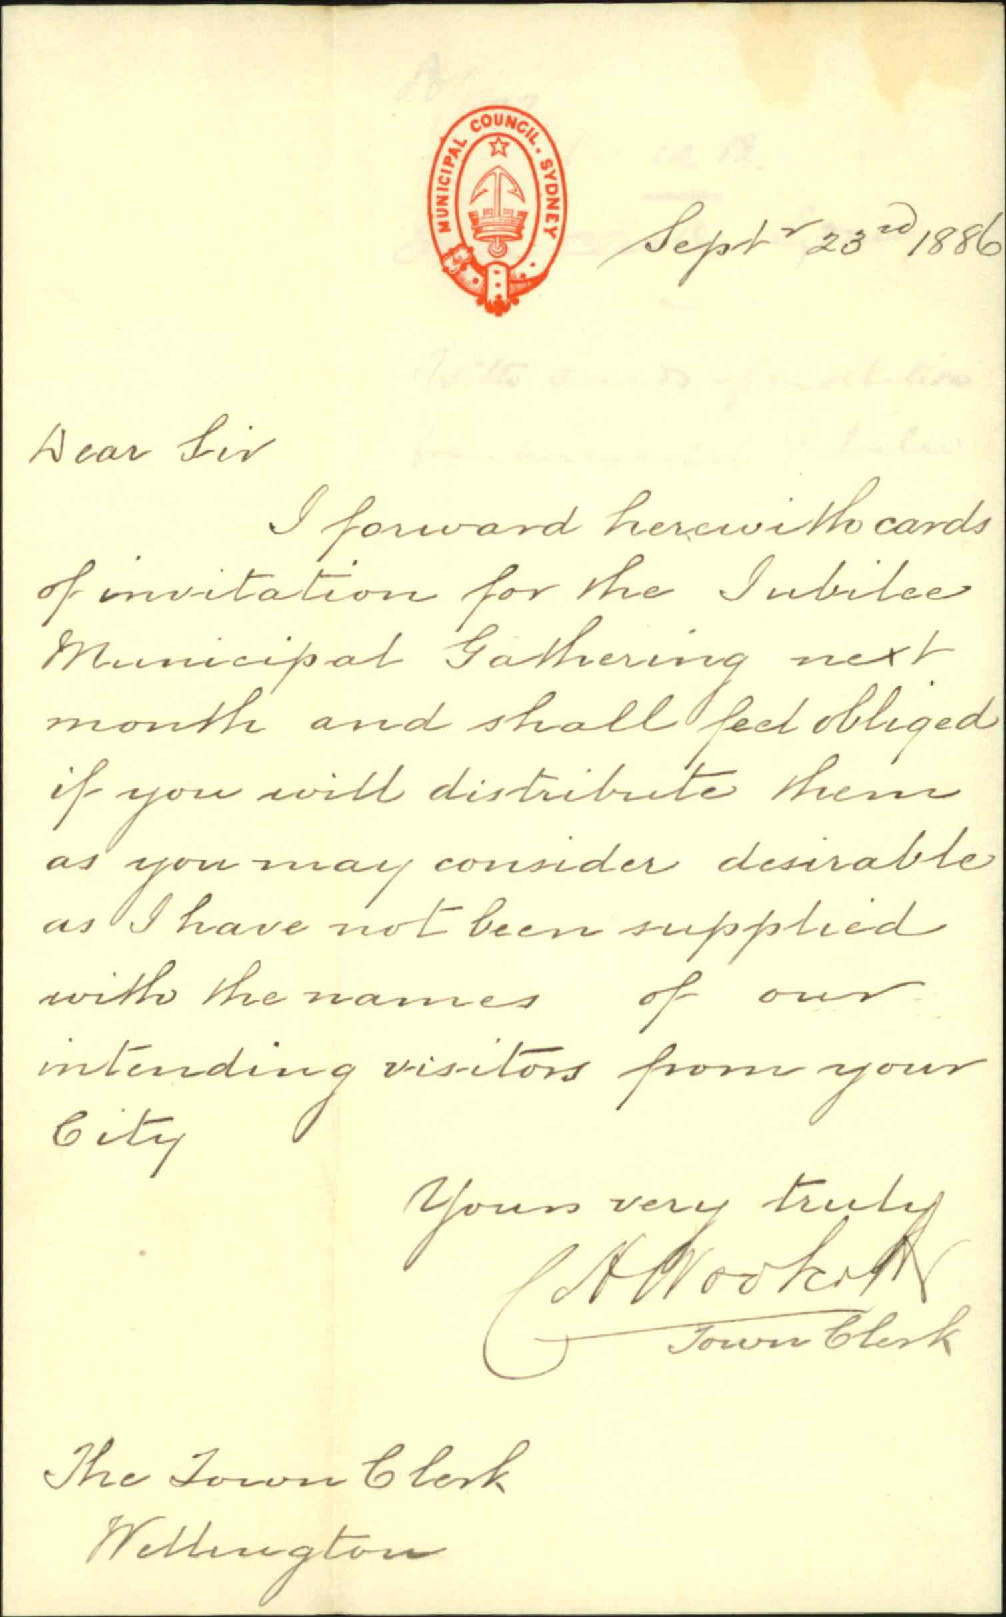 MUNICIPAL COUNCIL. SYDNEY
Septr 23rd 1886
Dear Sir
I forward herewith cards
of invitation for the Jubilee
Municipal Gathering next
month and shall feel obliged
if you will distribute them
as you may consider desirable
as I have not been supplied
with the names of our
intending visitors from your
City
Yours very truly
Town Clerk
The Town Clerk
Wellington